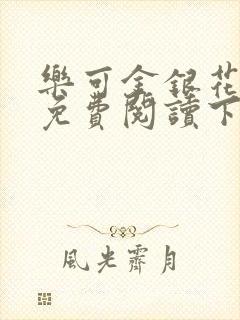 樂可金銀花
免費閱讀下
風光霽月